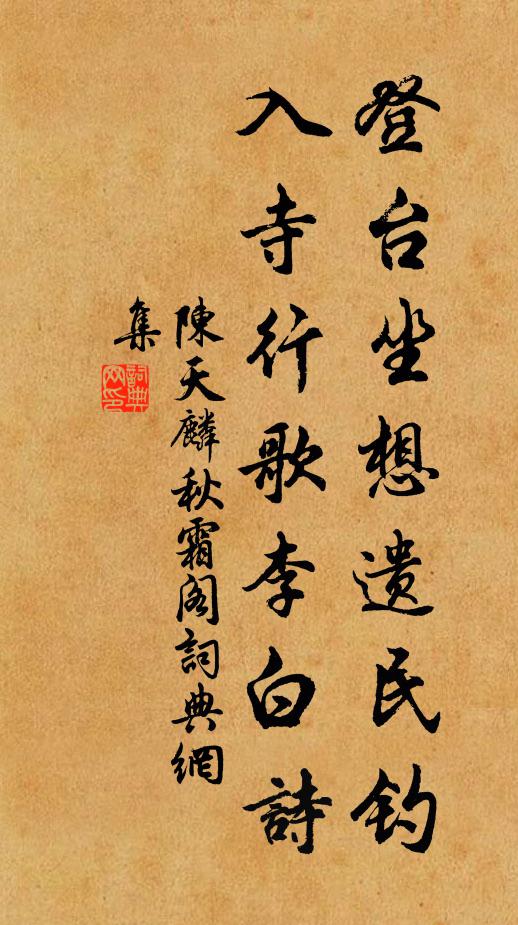 登台坐想遗民钓
入寺行歌李白詩
陳天麟秋霜阁詞典網
集
詞典网印